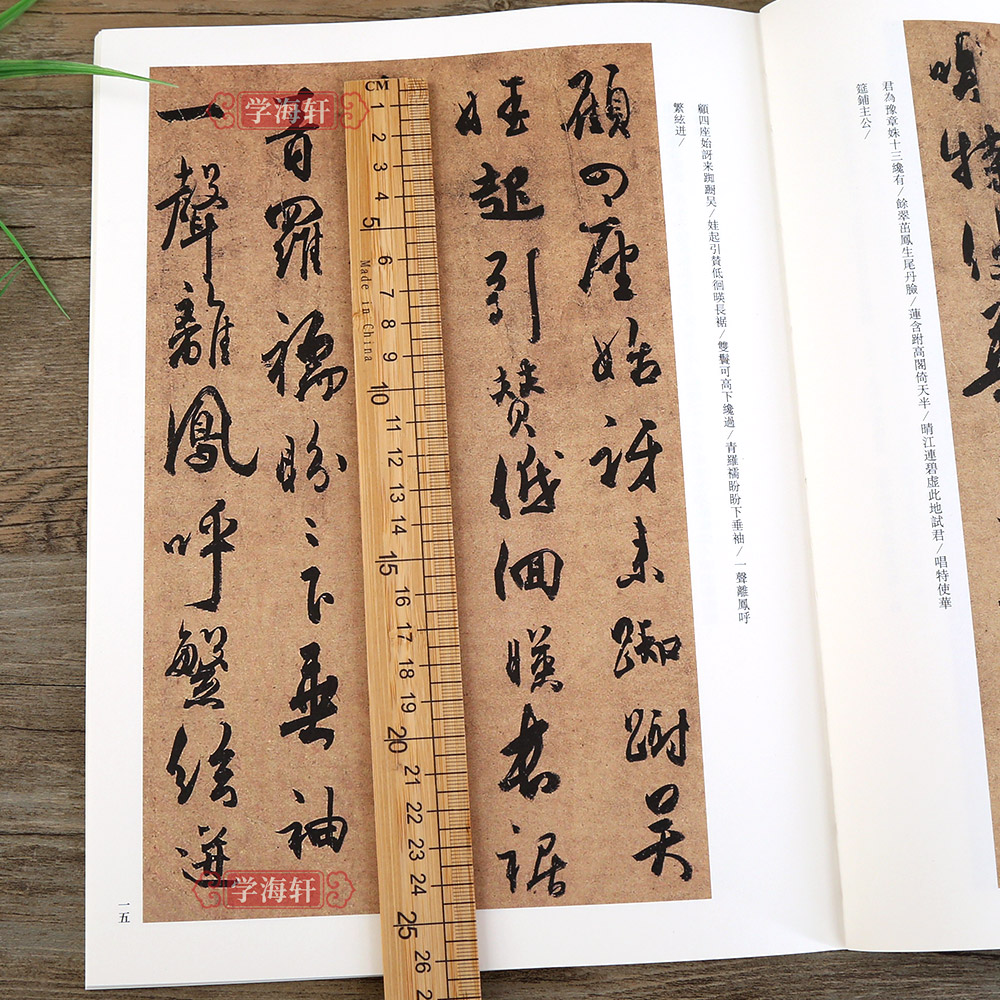 唱特使華
君為豫章姝十三纔有/餘翠茁鳳生尾丹臉/蓮含跗高閣倚天半/晴江連碧虛此地試君/唱特使華
筵鋪主公/
顧四座始訝来踟躕吴/娃起引賛低徊暎長裾/雙鬟可高下纔過/青羅襦盼盼下垂袖/一聲離鳳呼
繁絃迸/
顧四座始訝来踟躕吴
娃起引賛低徊暎長裾
青羅襦盼〻下垂袖
一聲離鳳呼繁絃迸
一五
CM
1
2
3
4
5
6
7
8
9
10
11
12
13
14
15
16
17
18
19
20
21
22
23
24
25
26
Made in China
学海轩
学海轩